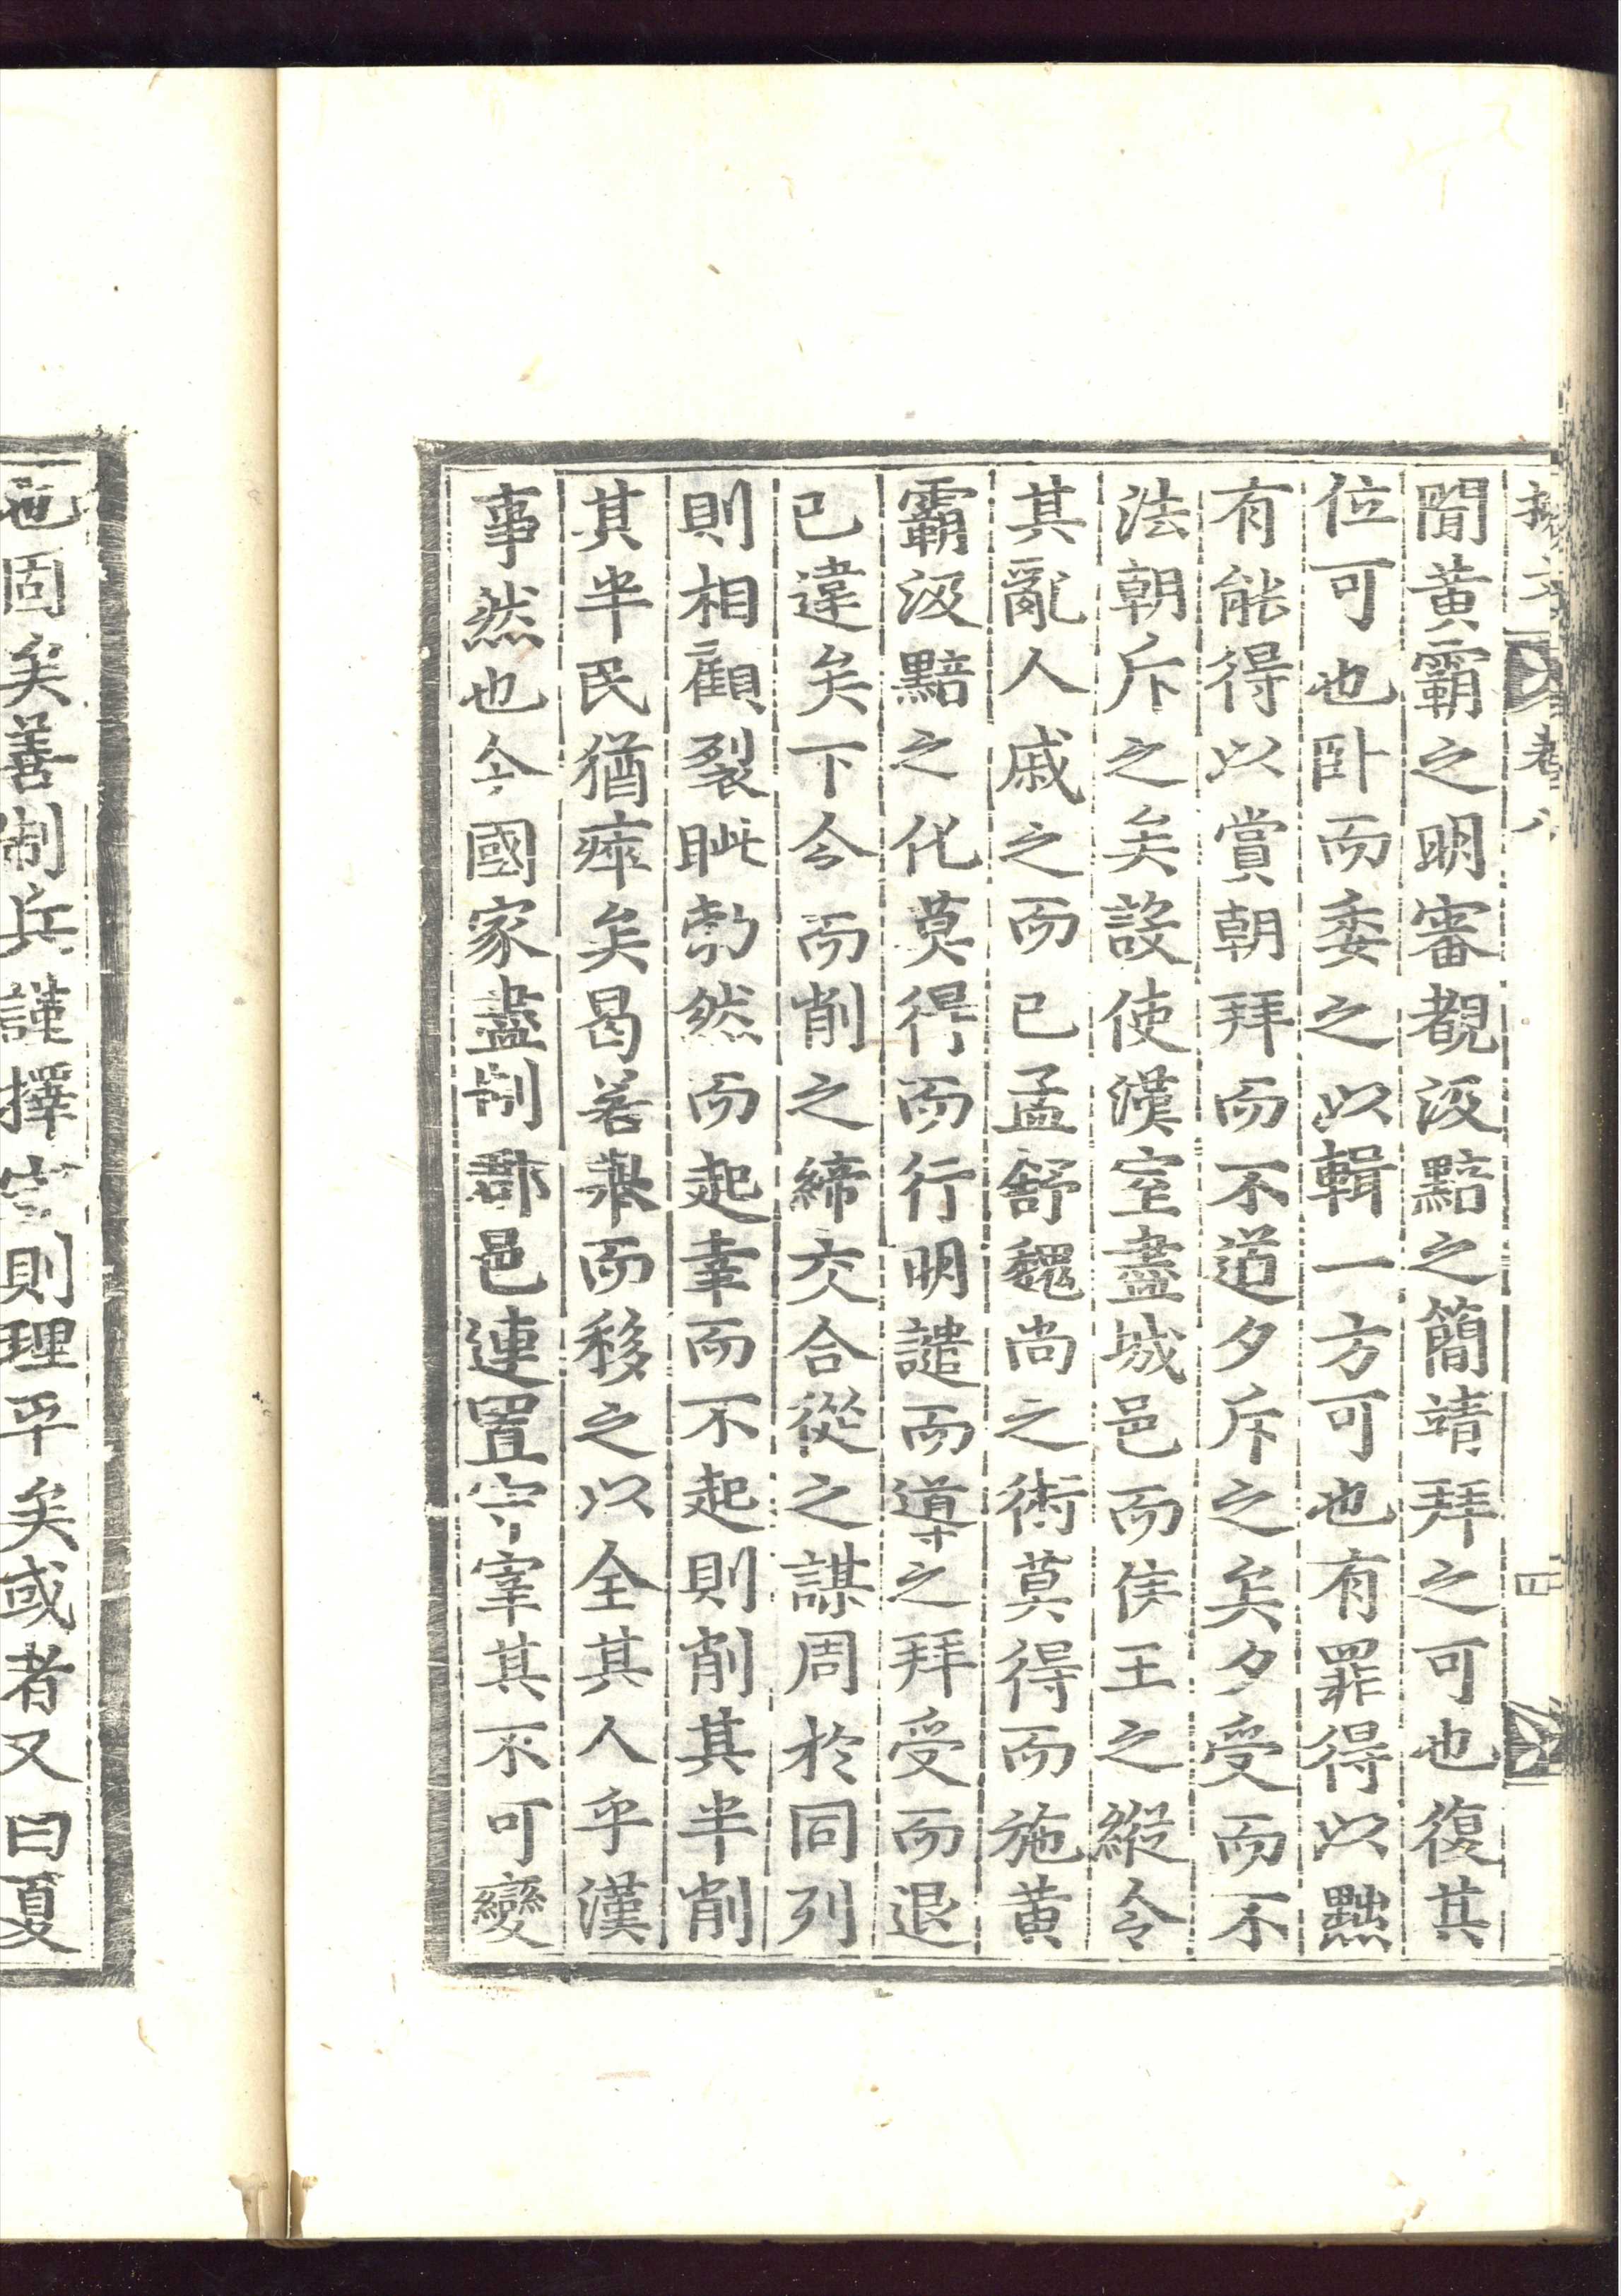 卷八
四
聞黃霸之明審覩汲黯之簡靖拜之可也復其
位可也卧而委之以輯一方可也有罪得以黜
有能得以賞朝拜而不道夕斥之矣夕受而不
法朝斥之矣設使漢室盡城邑而侯王之縱令
其亂人戚之而已孟舒魏尚之術莫得而施黃
霸汲黯之化莫得而行明譴而導之拜受而退
已違矣下令而削之締交合從之謀周於同列
則相顧裂眦勃然而起幸而不起則削其半削
其半民猶瘁矣曷若舉而移之以全其人乎漢
事然也今國家盡制郡邑連置守宰其不可變
也固矣善制兵謹擇守則理平矣或者又曰夏